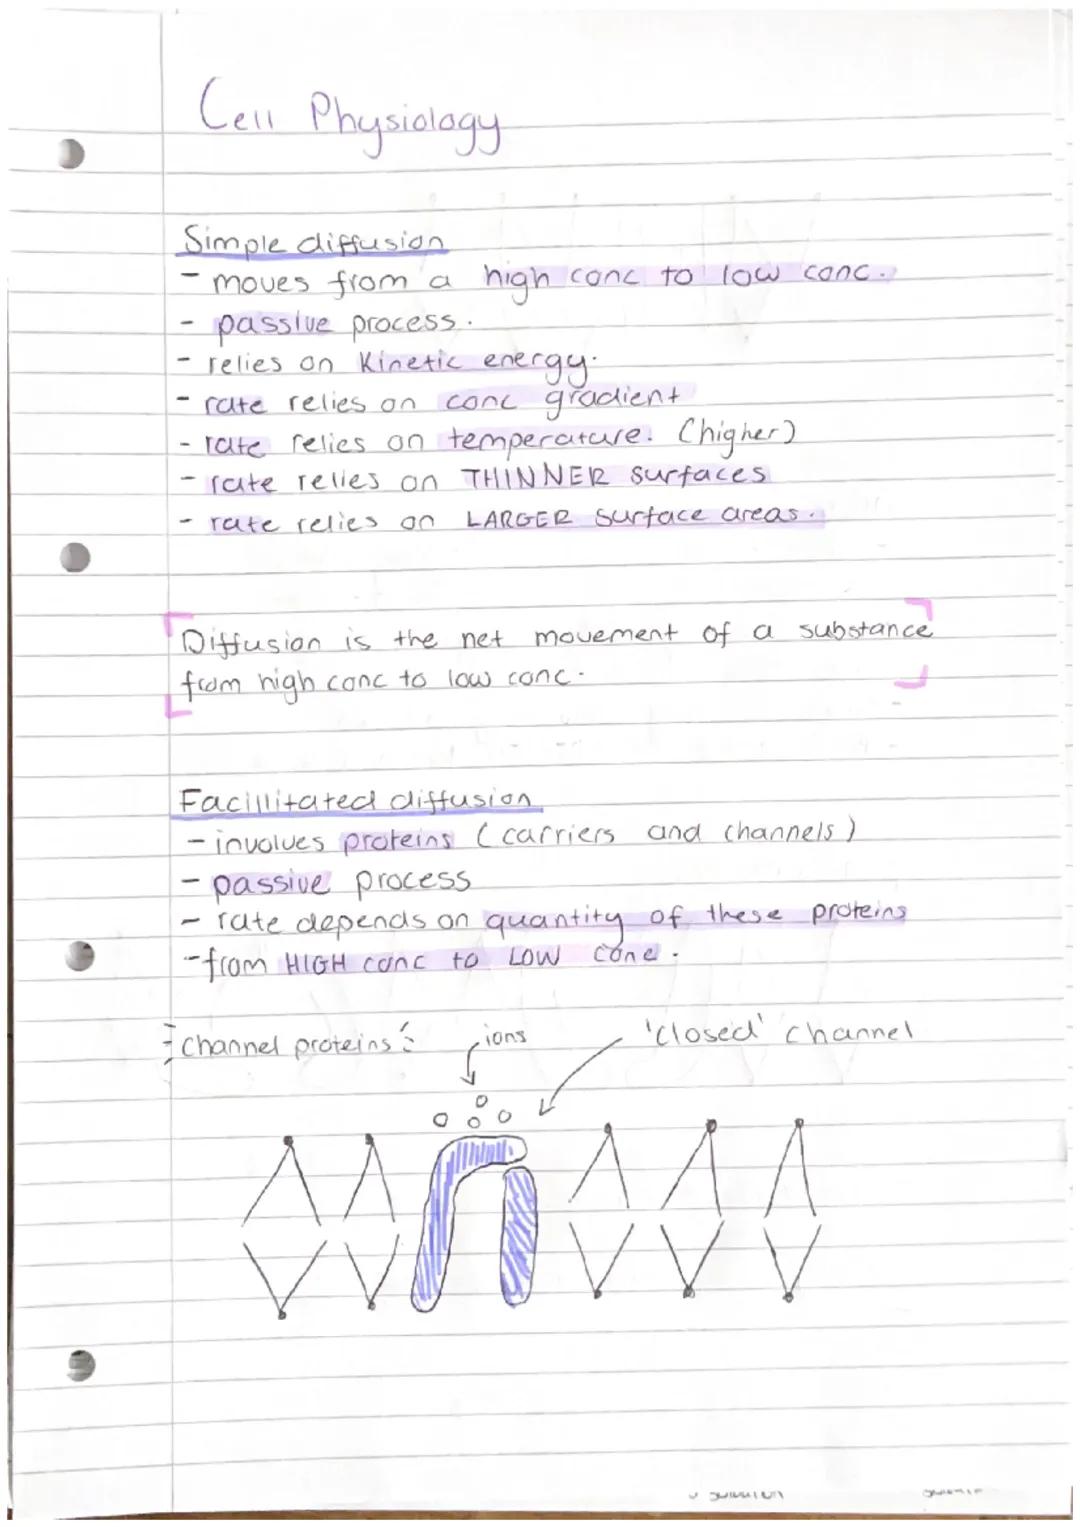 Cell Physiology
Simple diffusion
- moves from a high conc to low conc.
- passive process.
- relies on Kinetic energy.
- rate relies on conc gradient
- rate relies on temperature. (higher)
- rate relies on THINNER surfaces
- rate relies on LARGER surface areas.
Diffusion is the net movement of a substance
from high conc to low conc.
Facillitated diffusion
- involves proteins (carriers and channels)
- passive process
- rate depends on quantity of these proteins
- from HIGH conc to LOW conc.
Channel proteins:
ions
'closed' channel